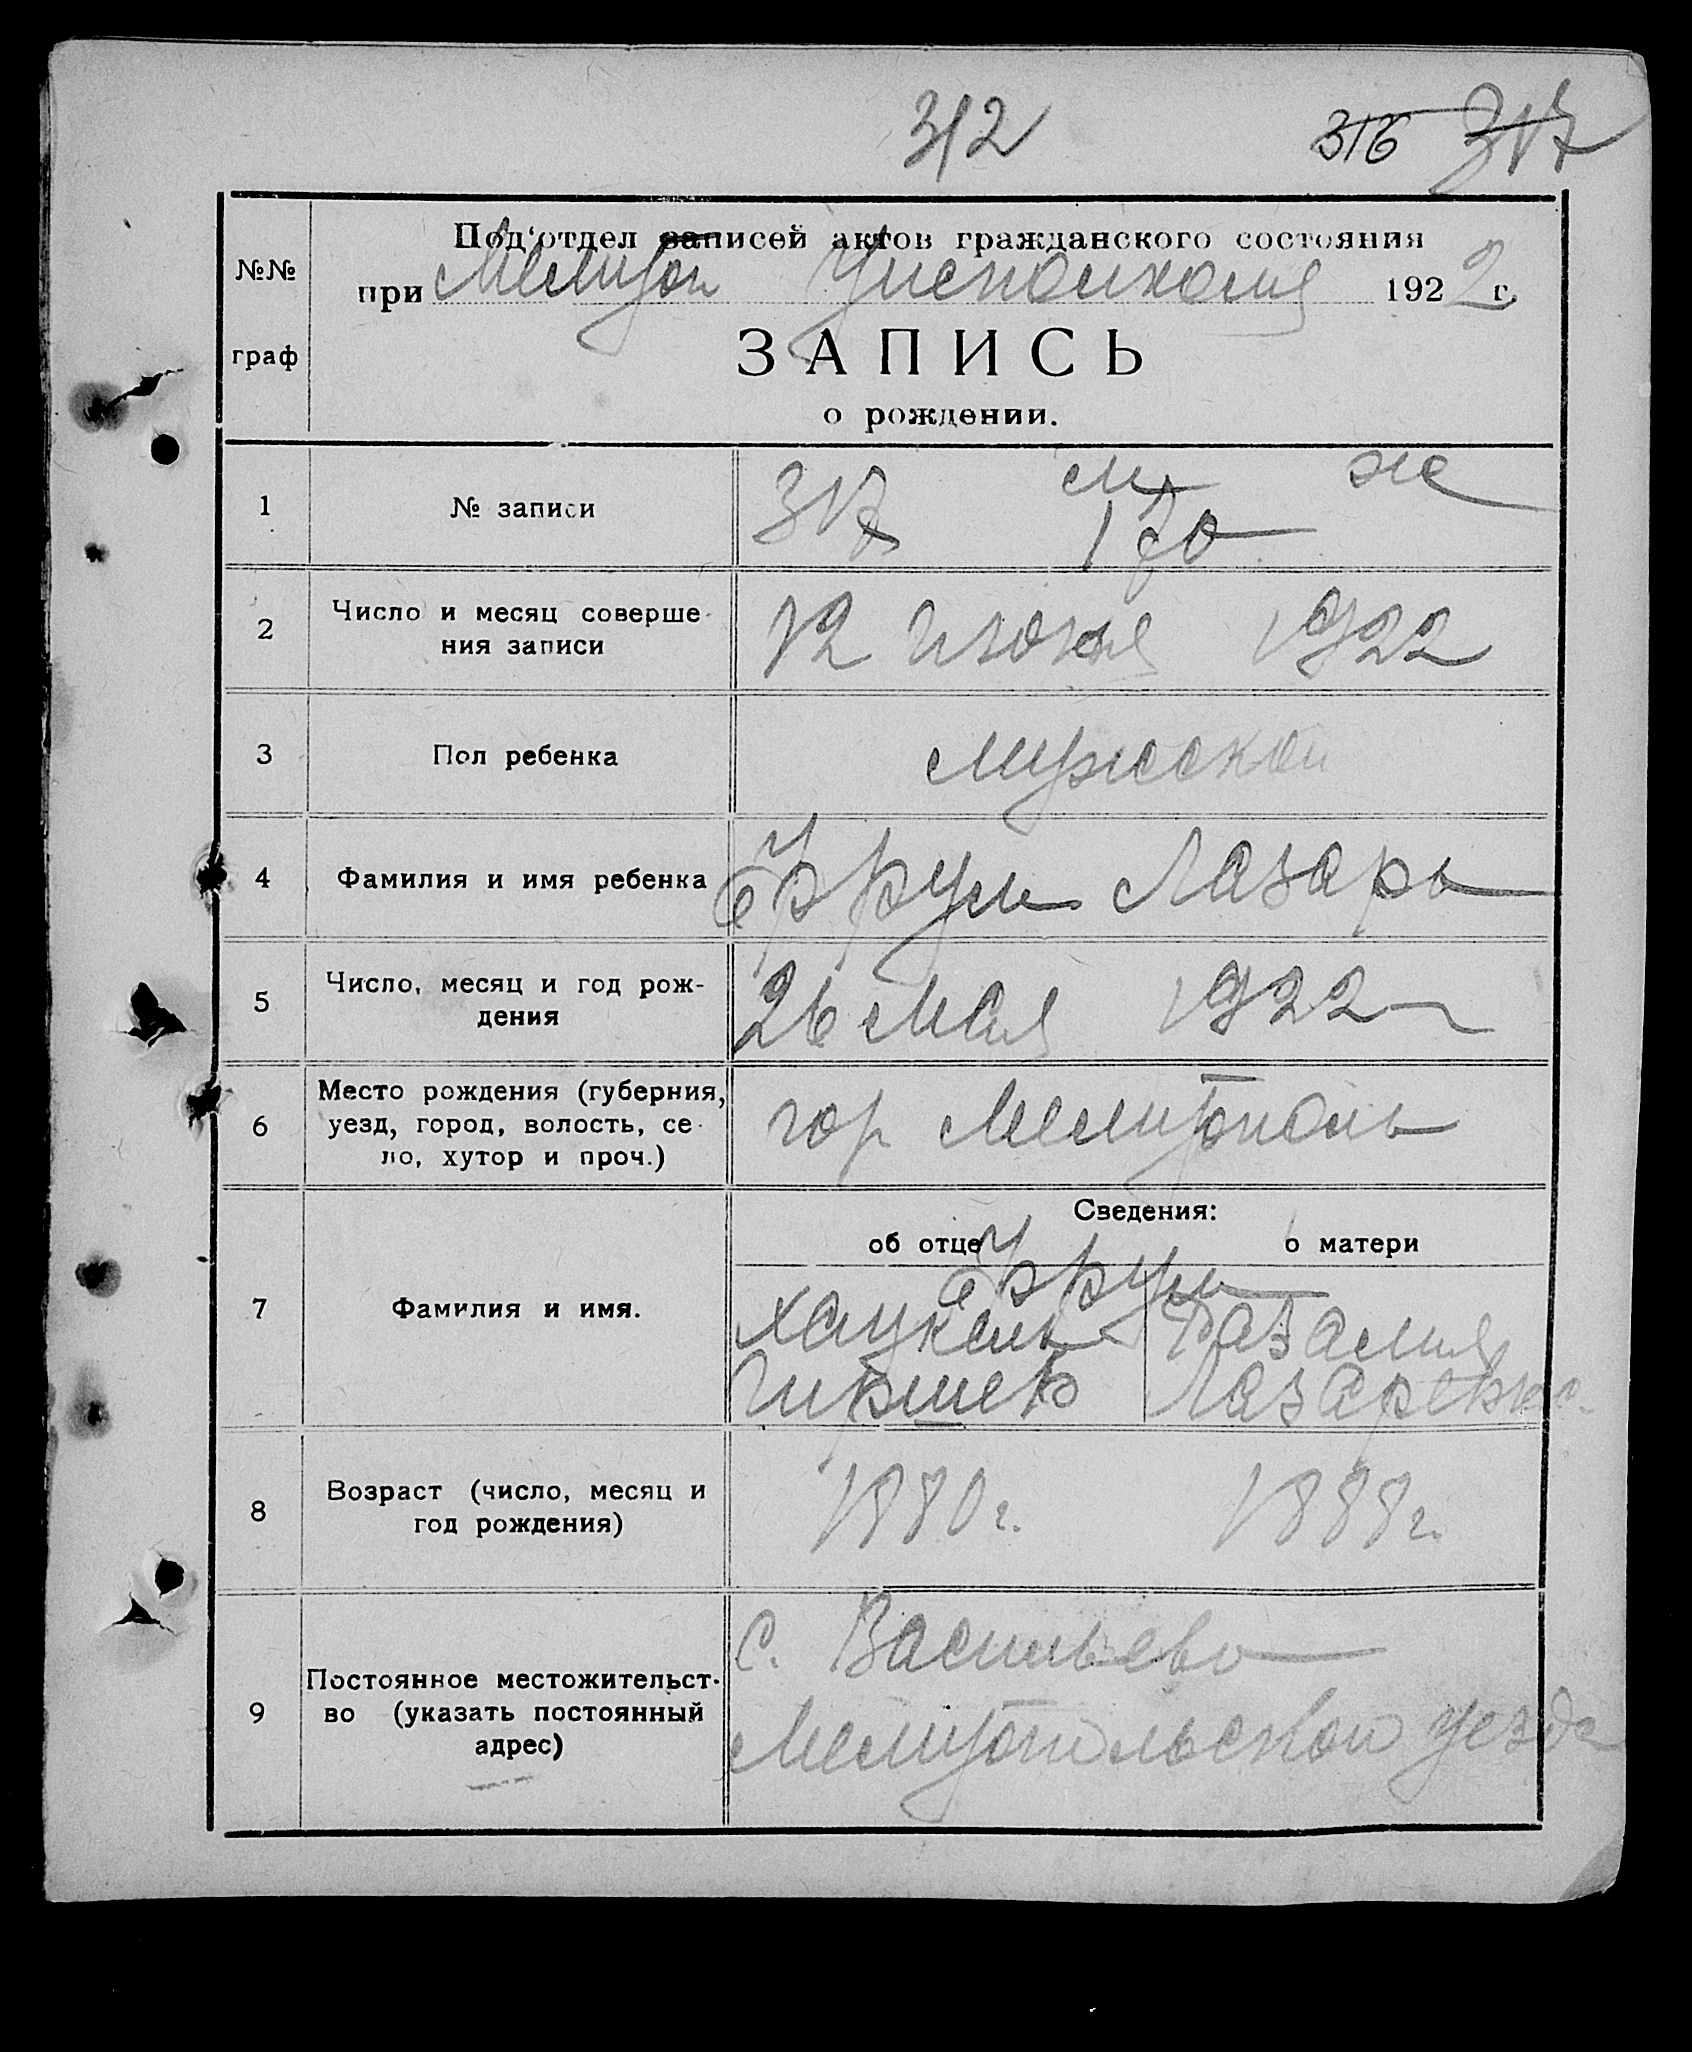 312 316 317
Под‘отдел записей актов гражданского состояния
при Мелитоп Уисполкома 1922 г.
№№
граф
ЗАПИСЬ
о рождении.
1 № записи 317 м 170 ж
2 Число и месяц соверше-
ния записи 12 июня 1922
3 Пол ребенка мужской
4 Фамилия и имя ребенка Лазарь
5 Число, месяц и год рож-
дения 26 мая 1922
6 Место рождения (губерния,
уезд, город, волость, се-
ло, хутор и проч.) гор Мелитополь
Сведения:
об отце о матери
7 Фамилия и имя.
8 Возраст (число, месяц и
год рождения) 1880 г. 1888 г.
9 Постоянное местожительст-
во (указать постоянный
адрес)
с. Васильево
Мелитопольской уезда